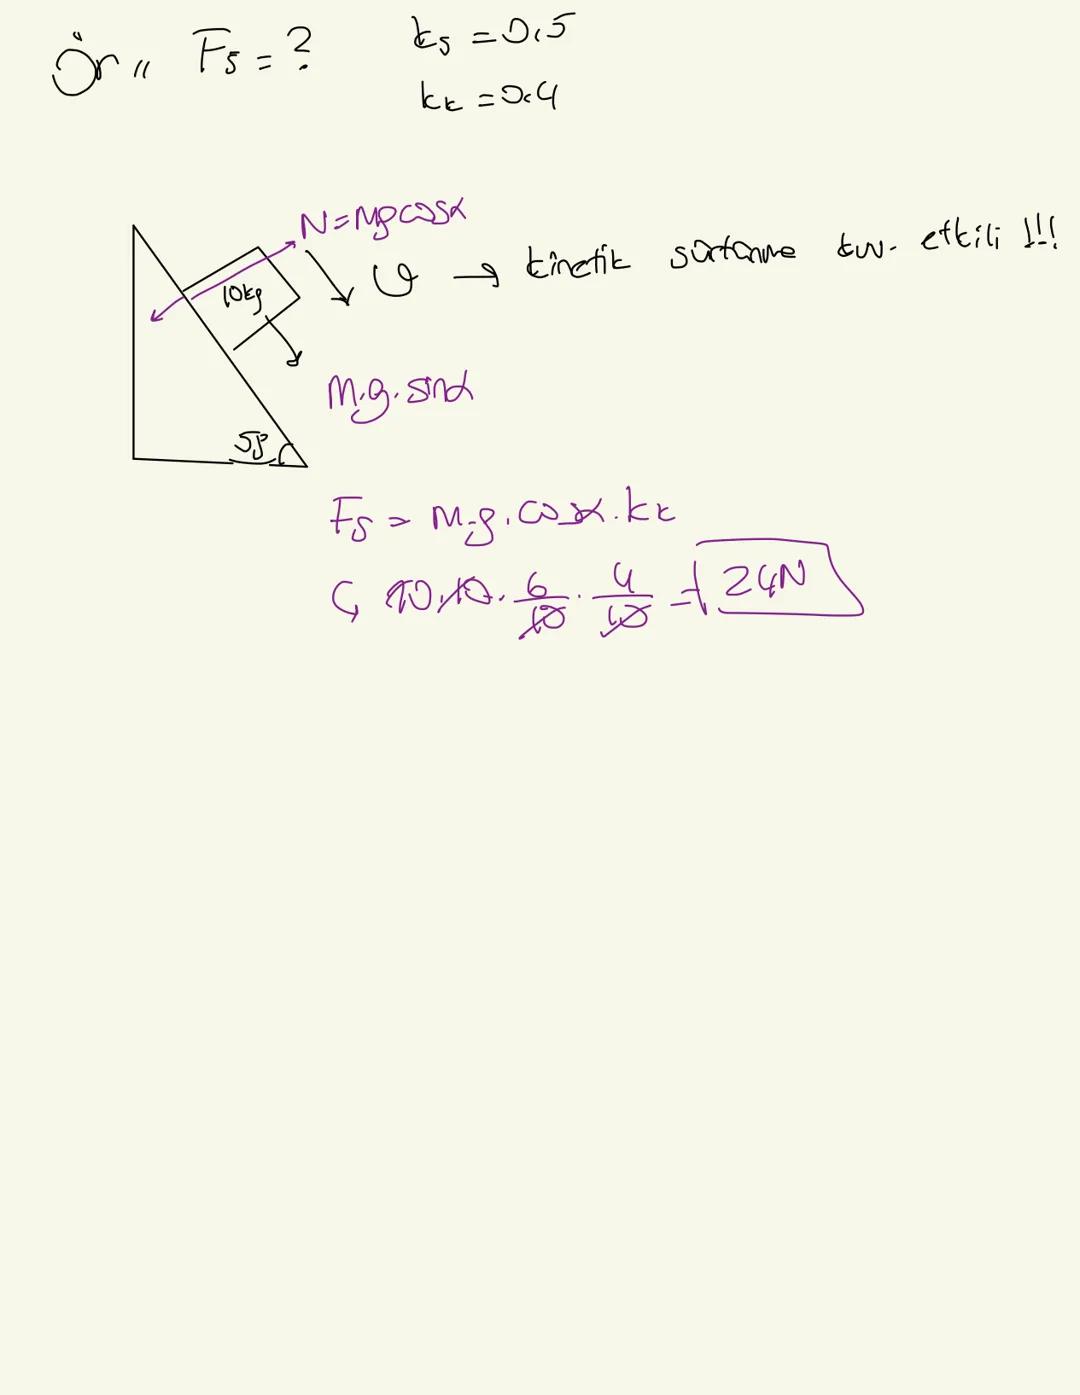 Ör,, Fs = ? ks = 0,5
kk = 0,4
N = mg cosα
10kg
v → kinetik sürtünme kuv. etkili !!!
m.g. sinα
53°
Fs = m.g. cosα . kk
↳ 10.10. 6/10 . 4/10 = 24N